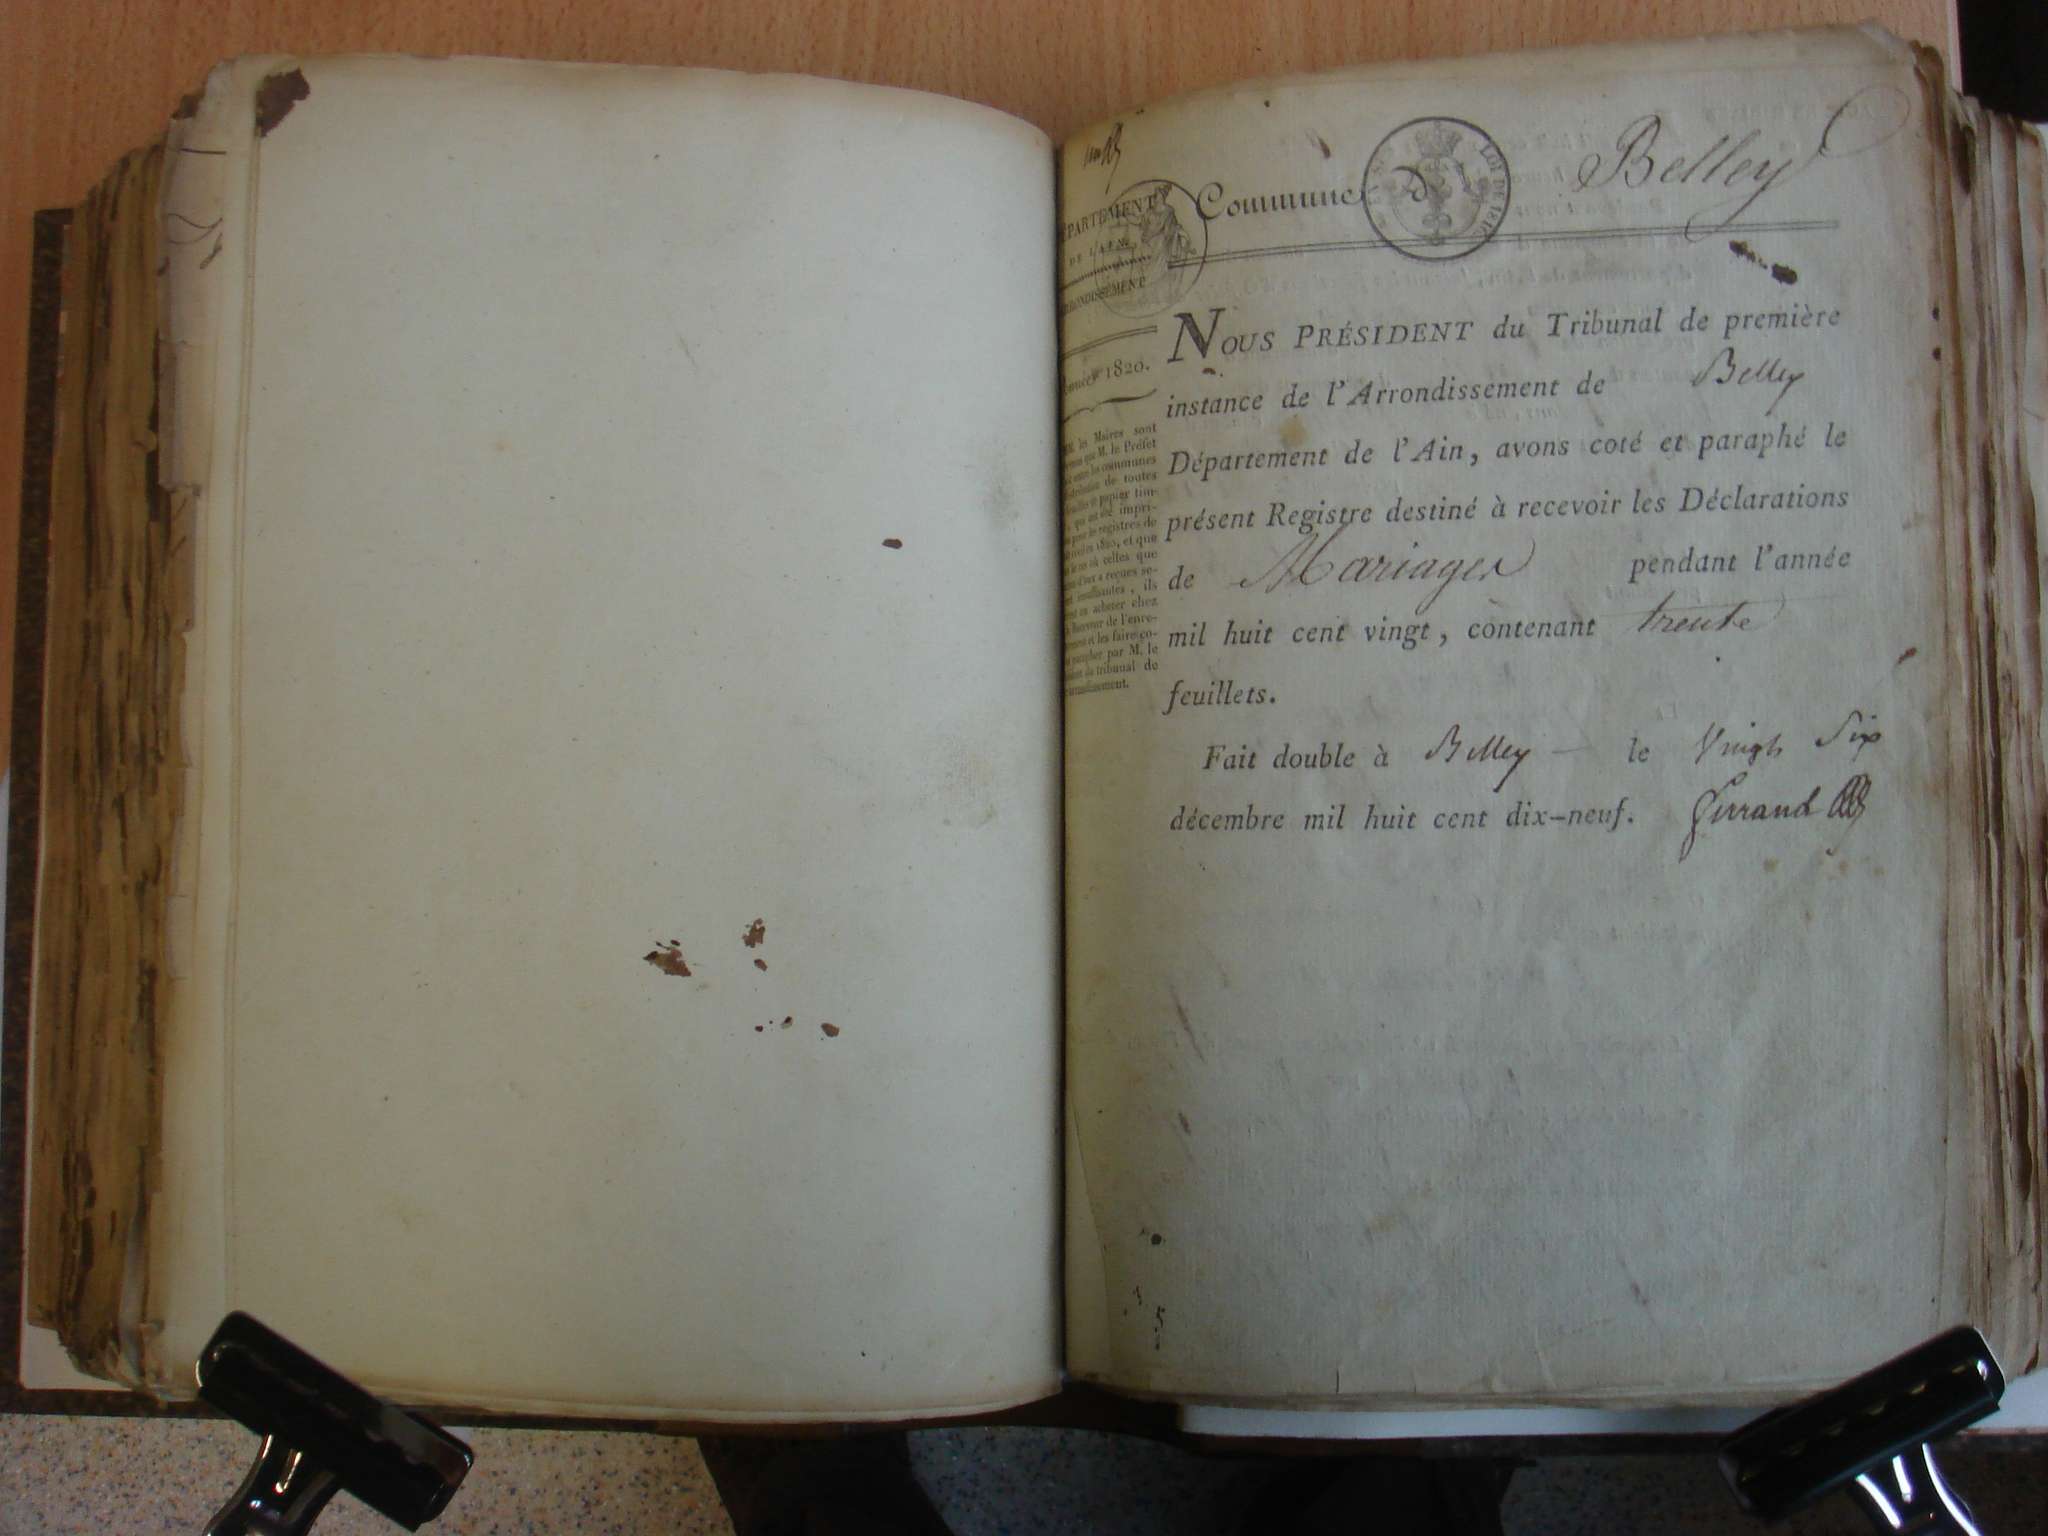 Commune de Belley
DÉPARTEMENT
DE L'AIN.
ARRONDISSEMENT
Année 1820.
MM. les Maires sont
que M. le Préfet
entre les communes
de toutes
papier tim-
, qui ont été impri-
pour les registres de
1820, et que
le cas où celles que
d'eux a reçues se-
insuffisantes, ils
en acheter chez
Receveur de l'enre-
et les faire co-
parapher par M. le
du tribunal de
arrondissement.
NOUS PRÉSIDENT du Tribunal de première
instance de l'Arrondissement de Belley
Département de l'Ain, avons coté et paraphé le
présent Registre destiné à recevoir les Déclarations
de Mariages pendant l'année
mil huit cent vingt, contenant trente
feuillets.
Fait double à Belley — le Vingt Six
décembre mil huit cent dix-neuf.
LOI DE 1816